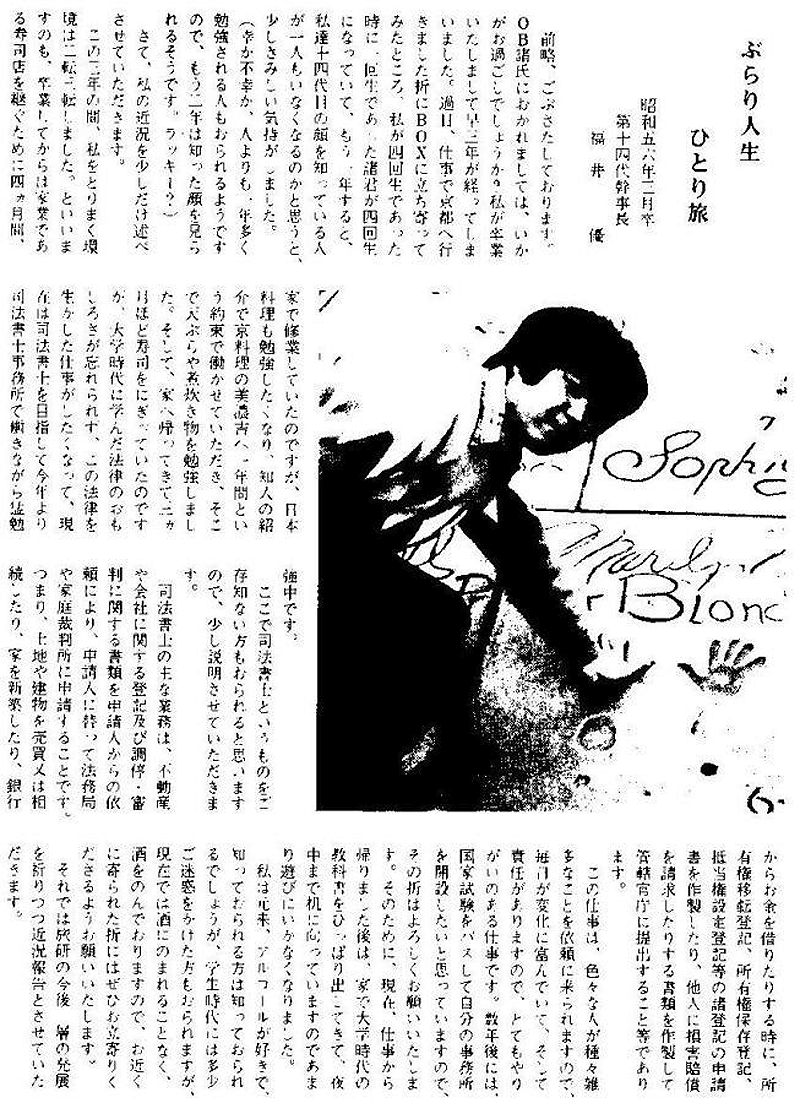 ぶらり人生
ひとり旅
昭和五六年三月卒
第十四代幹事長
福井 優
前略、ごぶさたしております。
OB諸氏におかれましては、いか
がお過ごしでしょうか?私が卒業
いたしまして早三年が経ってしま
いました。過日、仕事で京都へ行
きました折にBOXに立ち寄って
みたところ、私が四回生であった
時に一回生であった諸君が四回生
になっていて、もう一年すると、
私達十四代目の顔を知っている人
が一人もいなくなるのかと思うと、
少しさみしい気持がしました。
(幸か不幸か、人よりも一年多く
勉強される人もおられるようです
ので、もう二年は知った顔を見ら
れるそうです。ラッキー?)
さて、私の近況を少しだけ述べ
させていただきます。
この三年の間、私をとりまく環
境は二転三転しました。といいま
すのも、卒業してからは家業であ
る寿司店を継ぐために四ヵ月間、
家で修業していたのですが、日本
料理も勉強したくなり、知人の紹
介で京料理の美濃吉へ一年間とい
う約束で働かせていただき、そこ
で天ぷらや煮炊き物を勉強しまし
た。そして、家へ帰ってきて三ヵ
月ほど寿司をにぎっていたのです
が、大学時代に学んだ法律のおも
しろさが忘れられず、この法律を
生かした仕事がしたくなって、現
在は司法書士を目指して今年より
司法書士事務所で働きながら猛勉
強中です。
ここで司法書士というものをご
存知ない方もおられると思います
ので、少し説明させていただきま
す。
司法書士の主な業務は、不動産
や会社に関する登記及び調停・審
判に関する書類を申請人からの依
頼により、申請人に替って法務局
や家庭裁判所に申請することです。
つまり、土地や建物を売買又は相
続したり、家を新築したり、銀行
からお金を借りたりする時に、所
有権移転登記、所有権保存登記、
抵当権設定登記等の諸登記の申請
書を作製したり、他人に損害賠償
を請求したりする書類を作製して
管轄官庁に提出すること等であり
ます。
この仕事は、色々な人が種々雑
多なことを依頼に来られますので、
毎日が変化に富んでいて、そして
責任がありますので、とてもやり
がいのある仕事です。数年後には、
国家試験をパスして自分の事務所
を開設したいと思っていますので、
その折はよろしくお願いいたしま
す。そのために、現在、仕事から
帰りました後は、家で大学時代の
教科書をひっぱり出してきて、夜
中まで机に向っていますのであま
り遊びにいかなくなりました。
私は元来、アルコールが好きで、
知っておられる方は知っておられ
るでしょうが、学生時代には多少
ご迷惑をかけた方もおられますが、
現在では酒にのまれることなく、
酒をのんでおりますので、お近く
に寄られた折にはぜひお立寄りく
ださるようお願いいたします。
それでは旅研の今後一層の発展
を祈りつつ近況報告とさせていた
だきます。
Sophi
Marilyn
Blond